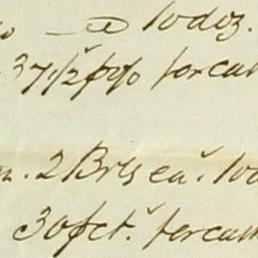 10 doz.
37 1/2 p% for cas
2 Brls ea. 10
30 pct. for cas